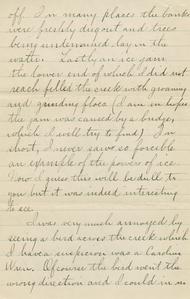 off. In many places the banks
were freshly dug out and trees
being undermined lay in the
water. Lastly an ice jam
the lower end of which I did not
reach filled the creek with groaning
and grinding floes (I am in hopes
the jam was caused by a bridge,
which I will try to find) In
short, I never saw so forcible
an example of the powers of ice.
Now I guess this will be dull to
you but it was indeed interesting
to see.
I was very much annoyed by
seeing a bird across the creek which
I have a suspicion was a Carolina
Wren. Of course the bird went the
wrong direction and I could in no